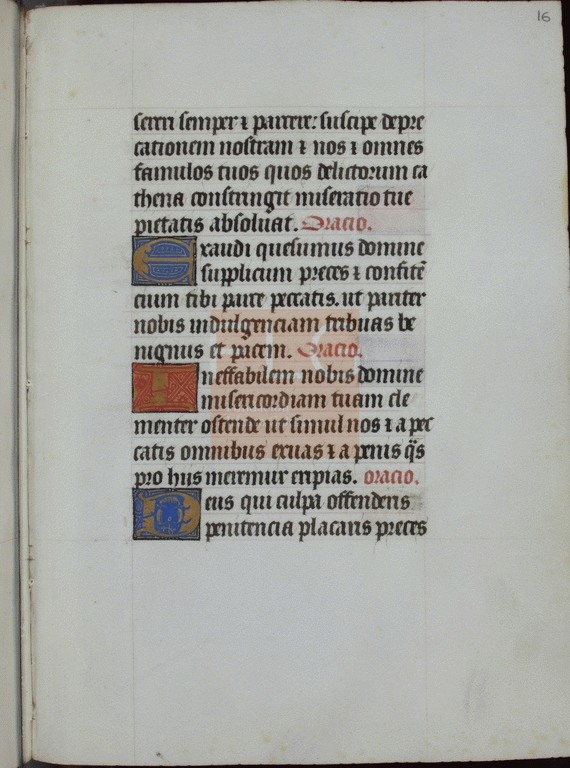 16
sereri semper ⁊ parcere: suscipe depre
cationem nostram ⁊ nos ⁊ omnes
famulos tuos quos delictorum ca
thena constringit miseratio tue
pietatis absoluat. Oracio.
Exaudi quesumus domine
supplicum preces ⁊ confitẽ
cium tibi parce peccatis. ut pariter
nobis indulgenciam tribuas be
nignus et pacem. Oracio.
Ineffabilem nobis domine
misericordiam tuam cle
menter ostende ut simul nos ⁊ a pec
catis omnibus exuas ⁊ a penis q̃s
pro hiis meremur eripias. oracio.
Deus qui culpa offenderis
penitencia placaris preces